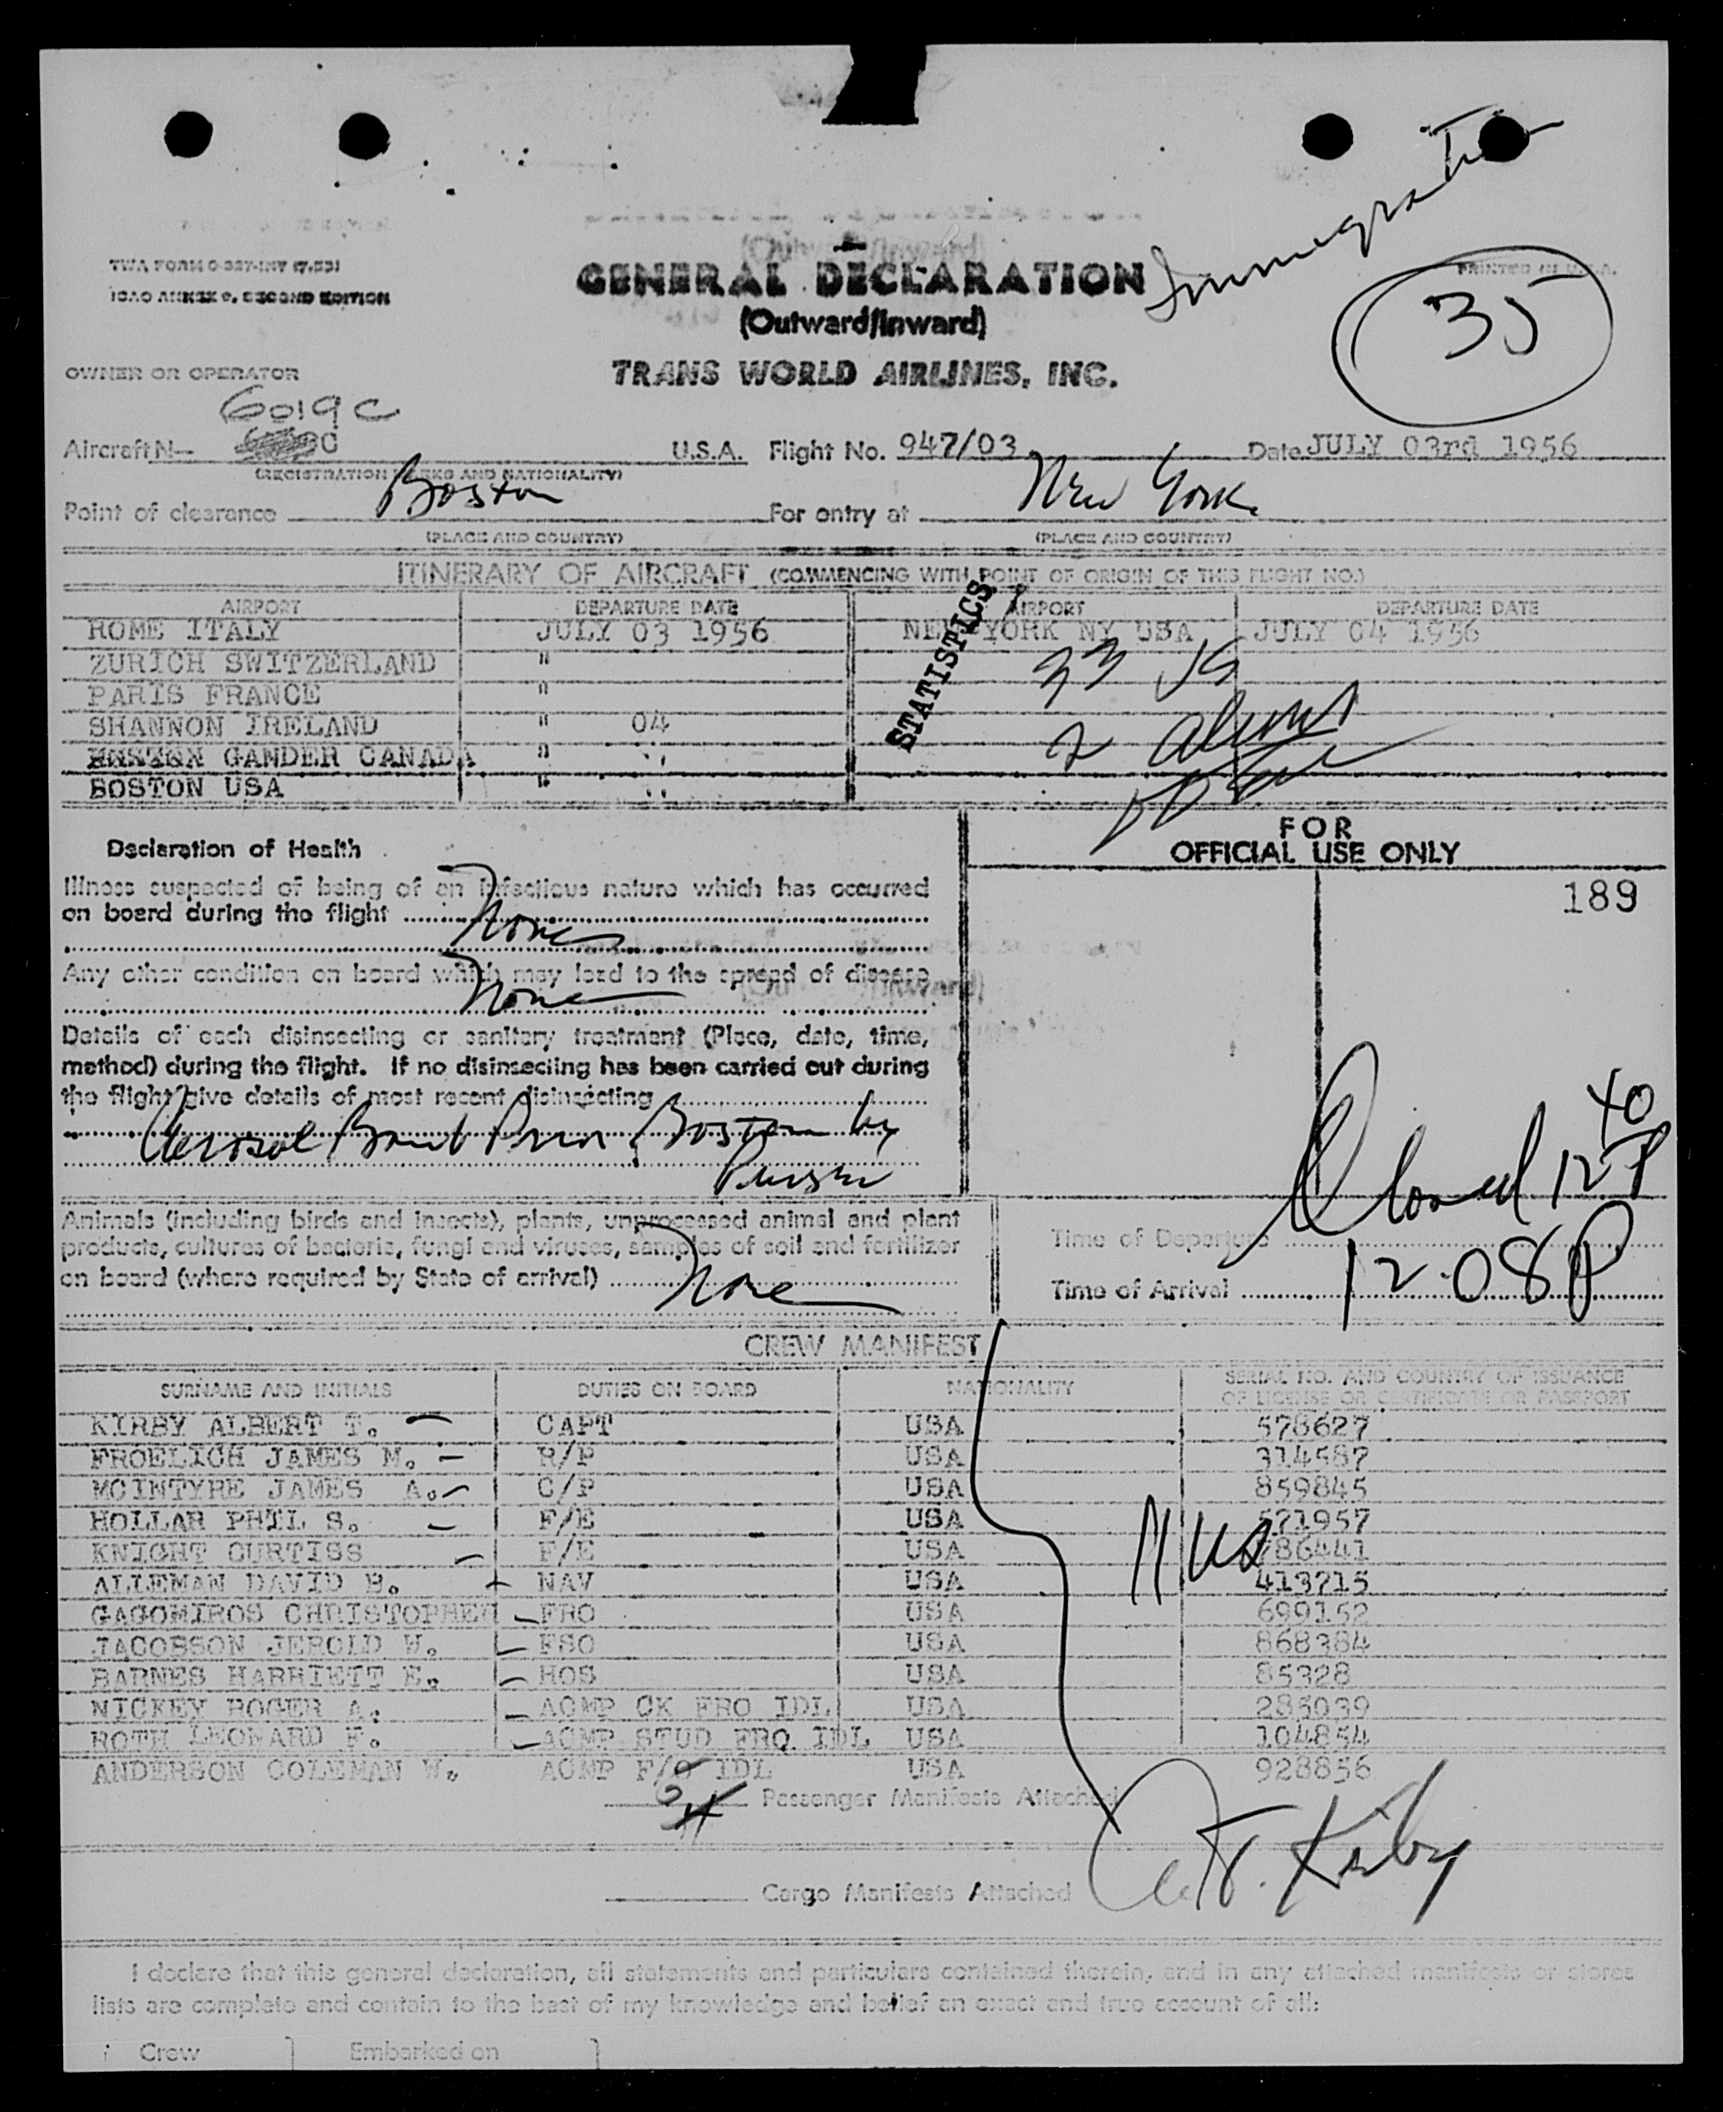 Immigration
TWA FORM O-327-INT (7.53)
ICAO ANNEX 9, SECOND EDITION
PRINTED IN U.S.A.
35
GENERAL DECLARATION
(Outward/Inward)
TRANS WORLD AIRLINES, INC.
OWNER OR OPERATOR
6019C
Aircraft N— U.S.A. Flight No. 947/03 Date JULY 03rd 1956
(REGISTRATION MARKS AND NATIONALITY)
Point of clearance Boston For entry at New York
(PLACE AND COUNTRY) (PLACE AND COUNTRY)
ITINERARY OF AIRCRAFT (COMMENCING WITH POINT OF ORIGIN OF THIS FLIGHT NO.)
AIRPORT DEPARTURE DATE AIRPORT DEPARTURE DATE
ROME ITALY JULY 03 1956 NEW YORK NY USA JULY 04 1956
ZURICH SWITZERLAND "
PARIS FRANCE "
SHANNON IRELAND " 04
GANDER CANADA " "
BOSTON USA " "
STATISTICS
33 US
2 aliens
Declaration of Health
Illness suspected of being of an infectious nature which has occurred
on board during the flight None
Any other condition on board which may lead to the spread of disease
None
Details of each disinsecting or sanitary treatment (Place, date, time,
method) during the flight. If no disinsecting has been carried out during
the flight give details of most recent disinsecting
Aerosol Bomb Prior Boston by
Purser
FOR
OFFICIAL USE ONLY
189
Closed 12 40 P
Animals (including birds and insects), plants, unprocessed animal and plant
products, cultures of bacteria, fungi and viruses, samples of soil and fertilizer
on board (where required by State of arrival) None
Time of Departure
Time of Arrival 12.08 P
CREW MANIFEST
SURNAME AND INITIALS DUTIES ON BOARD NATIONALITY SERIAL NO. AND COUNTRY OF ISSUANCE
OF LICENSE OR CERTIFICATE OR PASSPORT
KIRBY ALBERT T. CAPT USA 578627
FROELICH JAMES M. R/P USA 314587
MCINTYRE JAMES A. C/P USA 859845
HOLLAR PHIL S. F/E USA 571957
KNIGHT CURTISS F/E USA 786441
ALLEMAN DAVID B. NAV USA 413715
GAGOMIROS CHRISTOPHER FRO USA 699152
JACOBSON JEROLD W. FSO USA 868384
BARNES HARRIETT E. HOS USA 85328
NICKEY ROGER A. ACMP CK FRO IDL USA 285039
ROTH LEONARD F. ACMP STUD FRO IDL USA 104854
ANDERSON COLEMAN W. ACMP F/O IDL USA 928856
11 USA
Passenger Manifests Attached
A. T. Kirby
Cargo Manifests Attached
I declare that this general declaration, all statements and particulars contained therein, and in any attached manifests or stores
lists are complete and contain to the best of my knowledge and belief an exact and true account of all:
Crew Embarked on